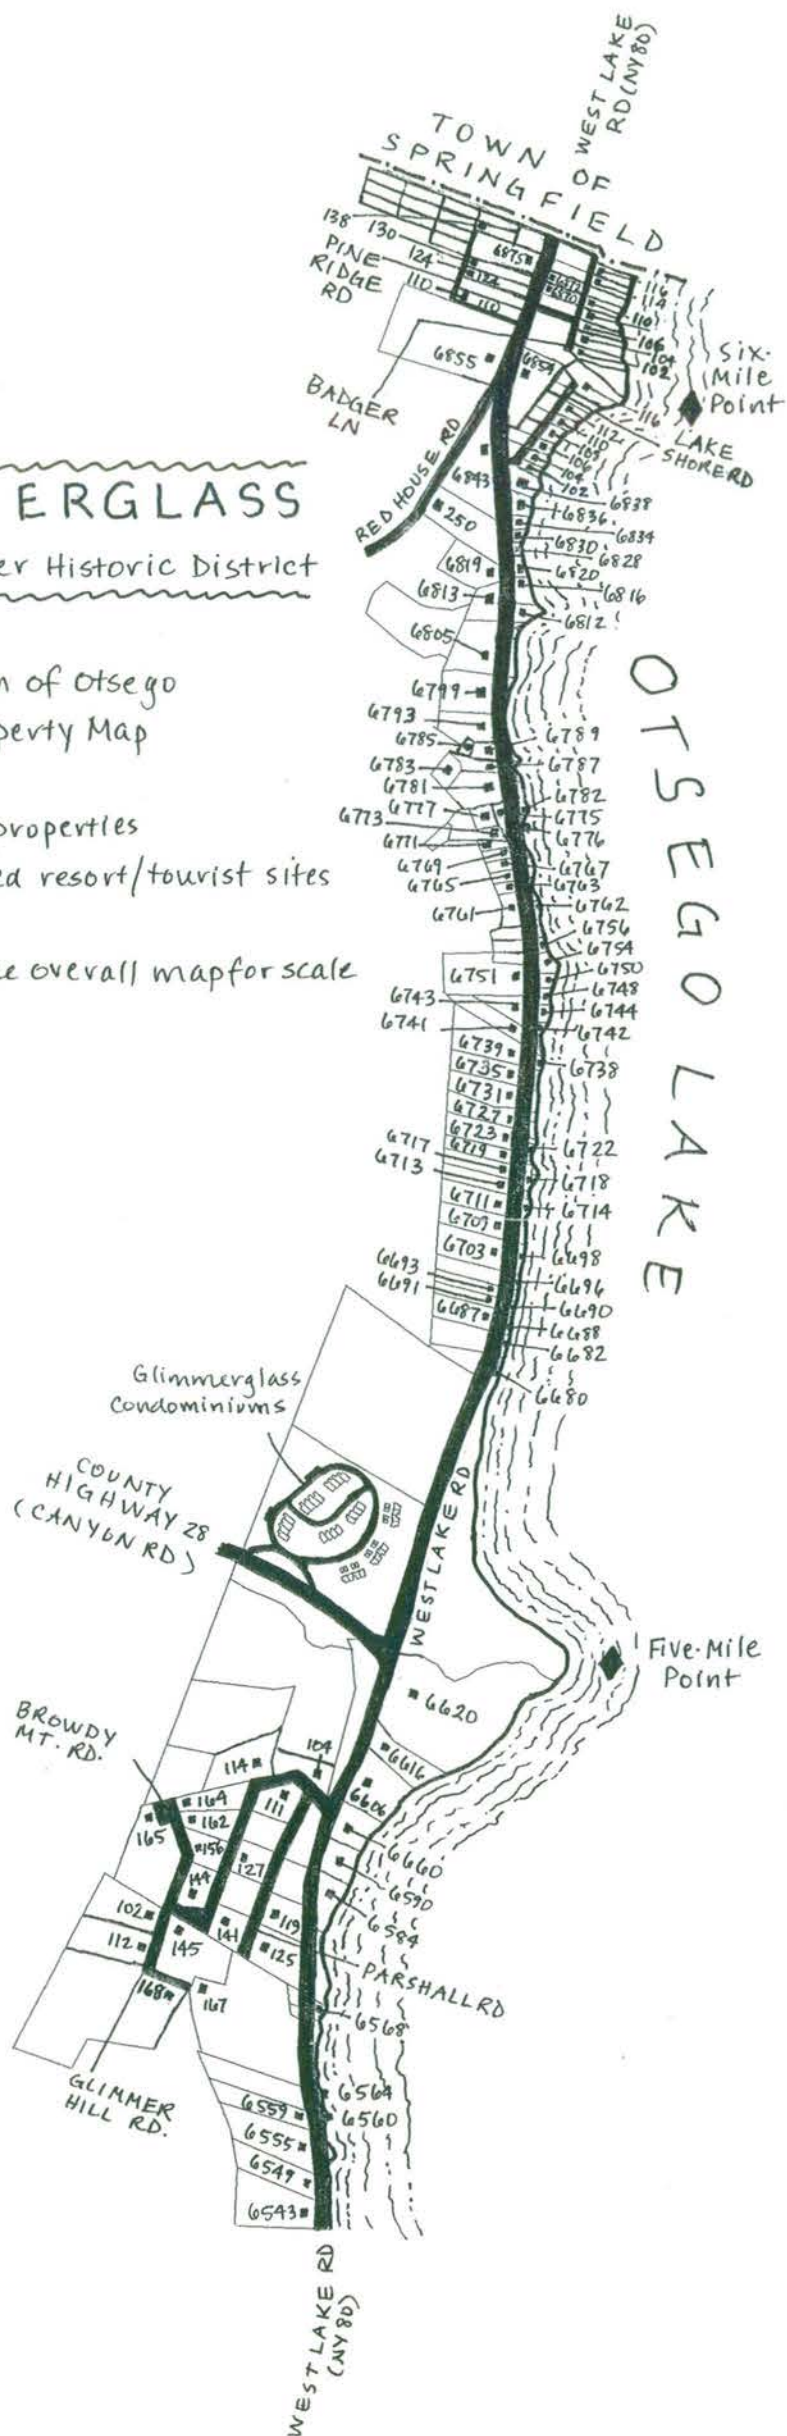 WEST LAKE
RD (NY80)
TOWN OF
SPRINGFIELD
138
130
PINE
RIDGE
RD
124
110
6875
124
110
6872
6870
116
114
110
106
104
102
Six-
Mile
Point
6855
6854
BADGER
LN
116
112
110
108
106
104
102
LAKE
SHORE RD
RED HOUSE RD
6843
250
6838
6836
6834
6830
6828
6820
6816
6812
6819
6813
6805
ERGLASS
er Historic District
n of Otsego
perty Map
properties
ed resort/tourist sites
e overall map for scale
OTSEGO LAKE
6799
6793
6785
6783
6781
6777
6773
6771
6769
6765
6761
6789
6787
6782
6775
6776
6767
6763
6762
6756
6754
6750
6748
6744
6742
6738
6751
6743
6741
6739
6735
6731
6727
6723
6719
6717
6713
6711
6709
6703
6693
6691
6687
6722
6718
6714
6698
6696
6690
6688
6682
6680
Glimmerglass
Condominiums
COUNTY
HIGHWAY 28
(CANYON RD)
WEST LAKE RD
Five-Mile
Point
6620
6616
6606
6660
6590
6584
BROWDY
MT. RD.
104
114
111
164
162
165
156
127
144
102
112
145
141
119
125
168
167
PARSHALL RD
6568
GLIMMER
HILL RD.
6564
6560
6559
6555
6549
6543
WEST LAKE RD
(NY80)